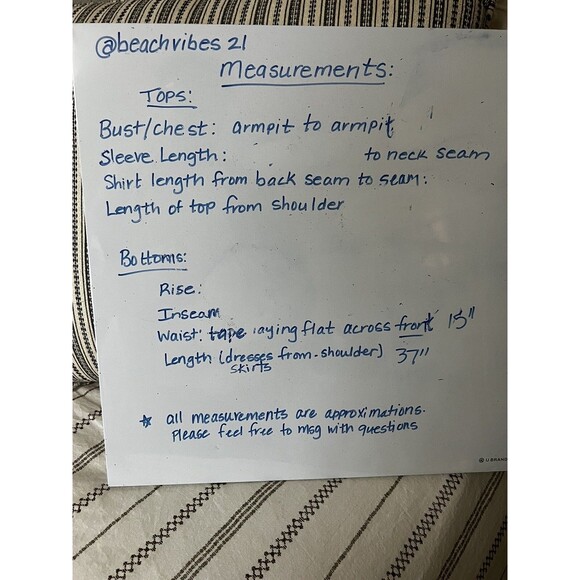 @beachvibes 21
Measurements:
TOPS:
Bust/chest: armpit to armpit
Sleeve Length: to neck seam
Shirt length from back seam to seam:
Length of top from shoulder
Bottoms:
Rise:
Inseam
Waist: tape laying flat across front 15"
Length (dresses from shoulder) 37"
skirts
* all measurements are approximations.
Please feel free to msg with questions